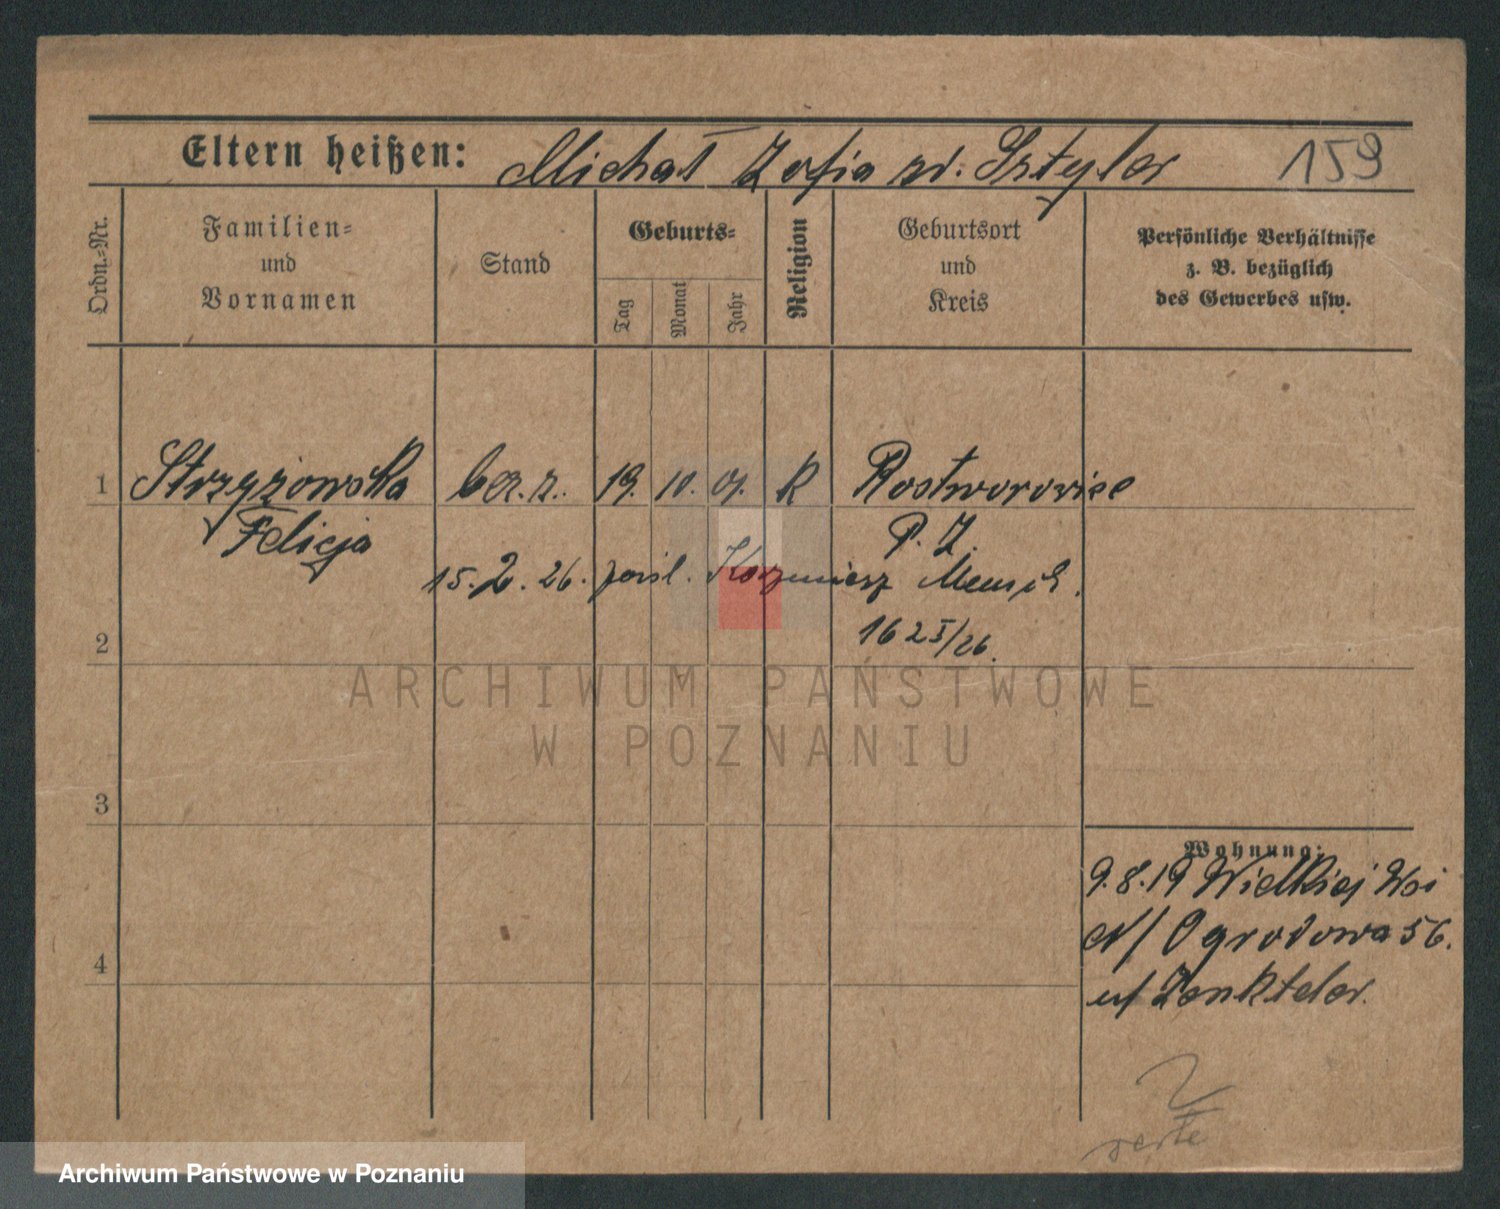 Eltern heißen: Michał Zofia zd. Sztyler 159
Ordn.-Nr.
Familien-
und
Vornamen
Stand
Geburts-
Tag
Monat
Jahr
Religion
Geburtsort
und
Kreis
Persönliche Verhältnisse
z. B. bezüglich
des Gewerbes usw.
1 Strzyżowska bez. z. 19. 10. 01. K Rostworowice
Felicja P. Z.
15. 2. 26. Kazimierz
2 16 2 I/26.
ARCHIWUM PAŃSTWOWE
W POZNANIU
3
Wohnung:
9.8.19 Wielkiej Wsi
Ogrodowa 56.
4
u/ Zenkteler.
verte
Archiwum Państwowe w Poznaniu